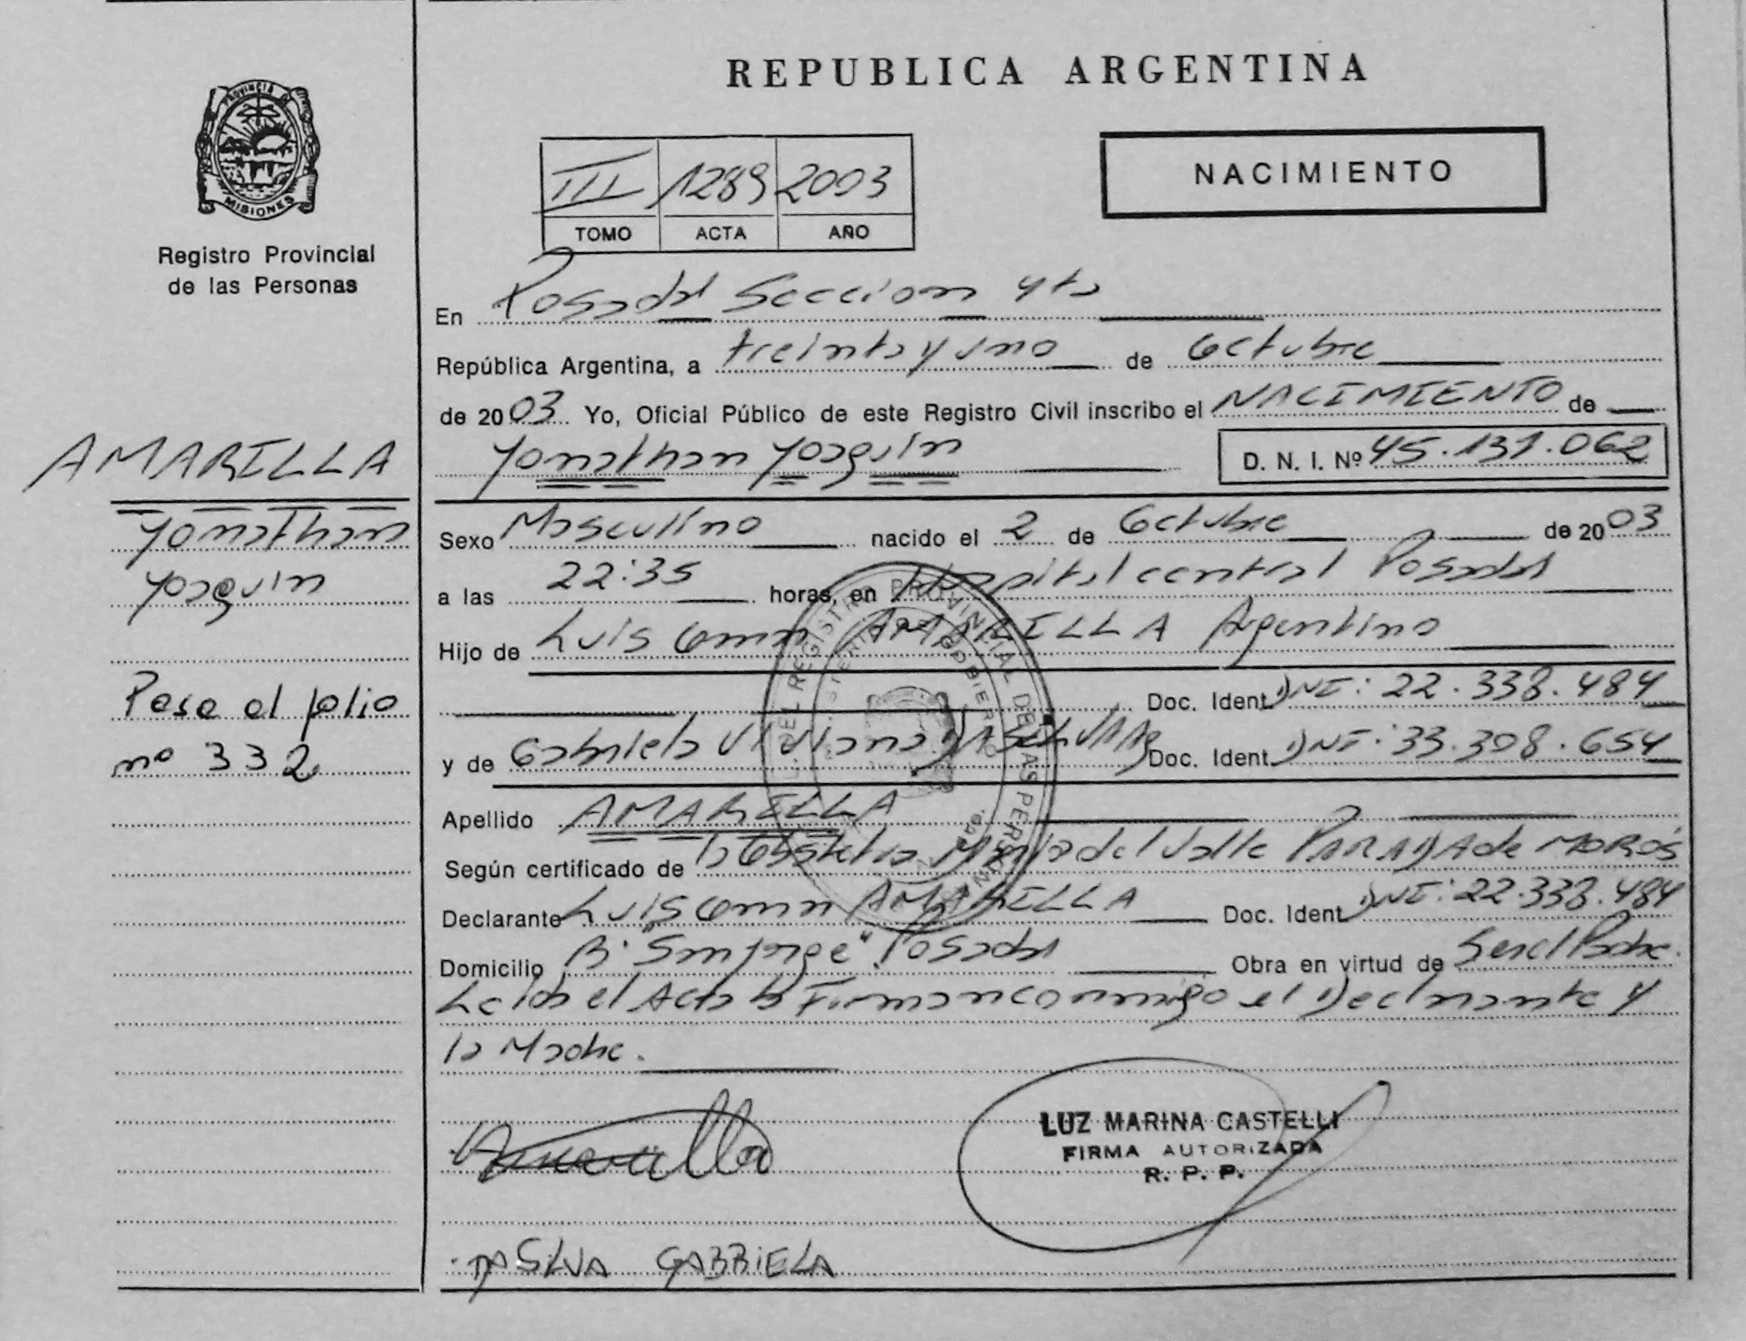 REPUBLICA ARGENTINA
PROVINCIA DE
MISIONES
Registro Provincial
de las Personas
III 1289 2003
TOMO ACTA AÑO
NACIMIENTO
En Posadas Seccion 4ta
República Argentina, a treinta y uno de Octubre
de 2003 Yo, Oficial Público de este Registro Civil inscribo el NACIMIENTO de
Yonathan Yoaquin D. N. I. Nº 45.131.062
AMARILLA
Yonathan
Yoaquin
Pasa al folio
nº 332
Sexo Masculino nacido el 2 de Octubre de 2003
a las 22:35 horas, en Hospital central Posadas
Hijo de Luis AMARILLA Argentino
Doc. Ident DNI: 22.338.484
y de Gabriela Viviana DA SILVA Doc. Ident DNI: 33.308.654
Apellido AMARILLA
Según certificado de la Obstetra María del Valle PARADA de MOROS
Declarante Luis AMARILLA Doc. Ident DNI: 22.338.484
Domicilio B° "San Jorge" Posadas Obra en virtud de Ser el Padre.
Leida el Acta la Firman conmigo el Declarante y
la Madre.
REGISTRO PROVINCIAL DE LAS PERSONAS
Amarilla
LUZ MARINA CASTELLI
FIRMA AUTORIZADA
R. P. P.
DA SILVA GABRIELA